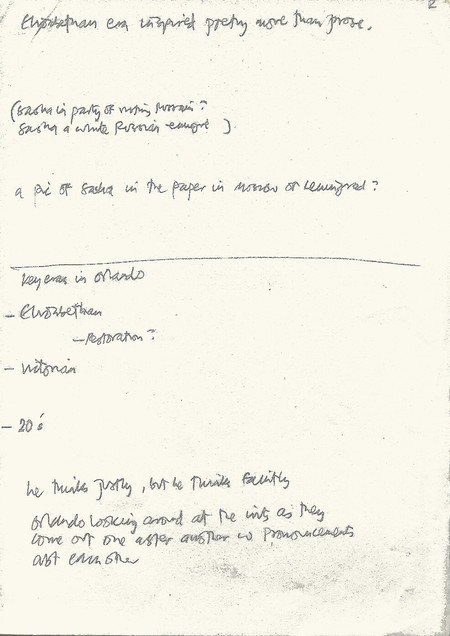 2
Elizabethan era inspired poetry more than prose.
(Sasha in party of visiting Russians?
Sasha a white Russian emigré).
a pic of Sasha in the paper in Moscow or Leningrad?
key eras in Orlando
- Elizabethan
- Restoration?
- Victorian
- 20
he thinks justly, but he thinks faintly
Orlando looking around at the wits as they
come out one after another w pronouncements
abt each other